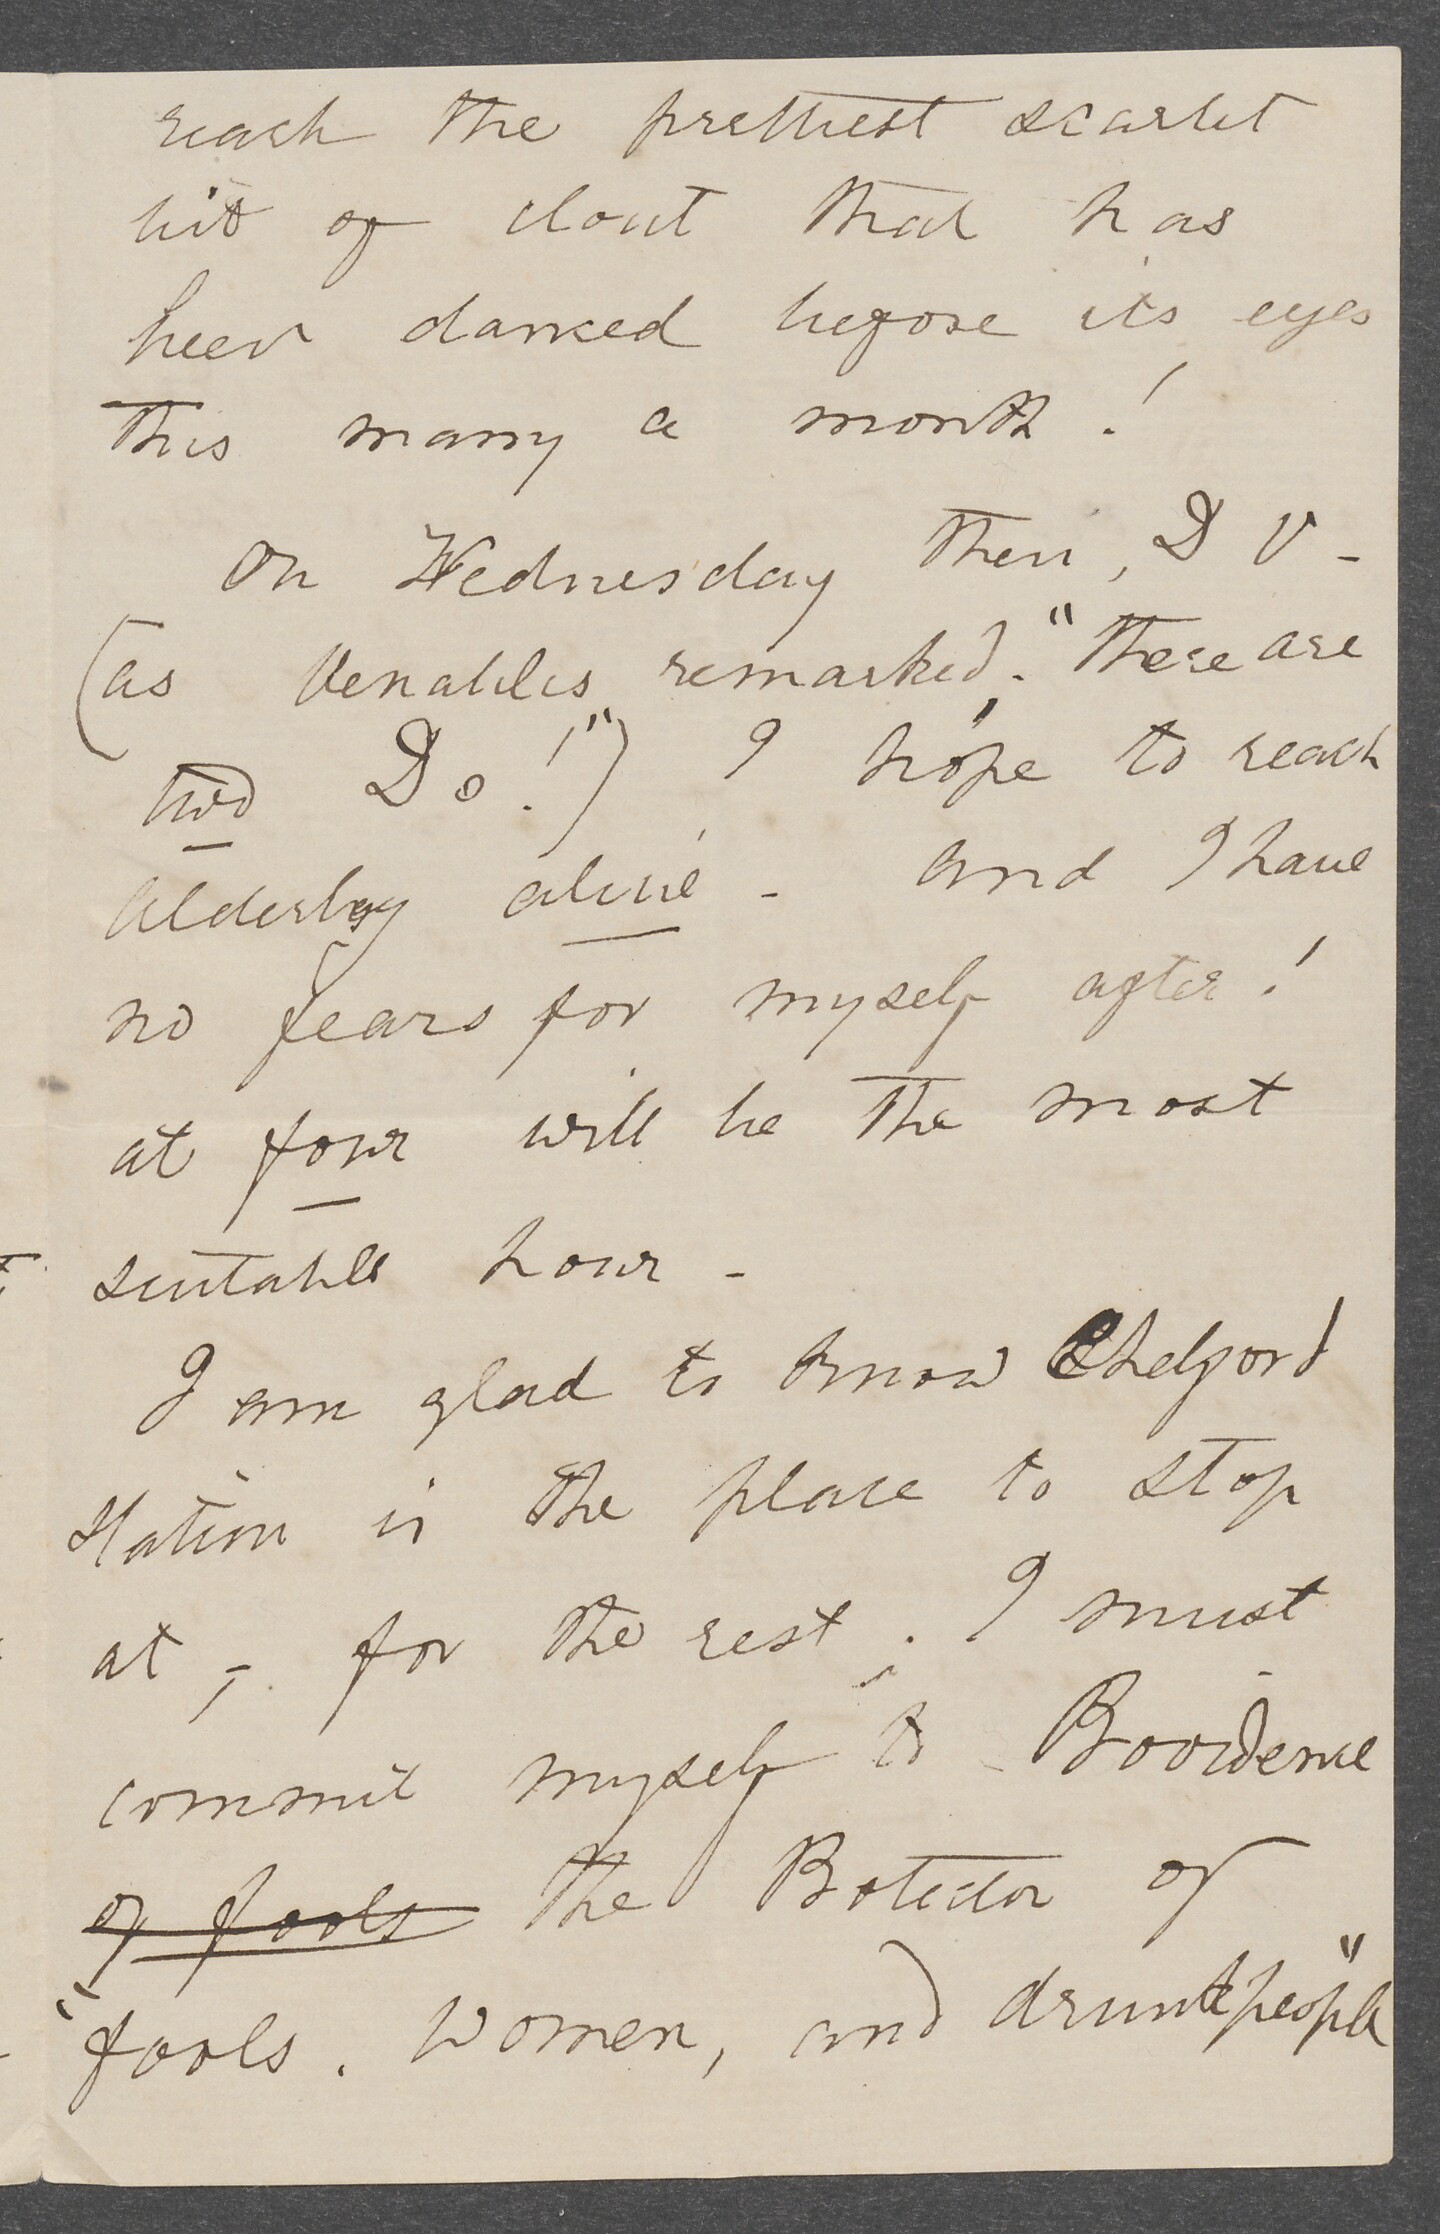 reach the prettiest scarlet
bit of clout that has
been danced before its eyes
this many a month!
On Wednesday then, D V -
(as Venables remarked, "There are
two Do!") I hope to reach
Alderley alive - and I have
no fears for myself after!
at four will be the most
suitable hour -
I am glad to know Chelford
Station is the place to stop
at, - for the rest, I must
commit myself to
of fools the Protector of
"fools, women, and drunk people"